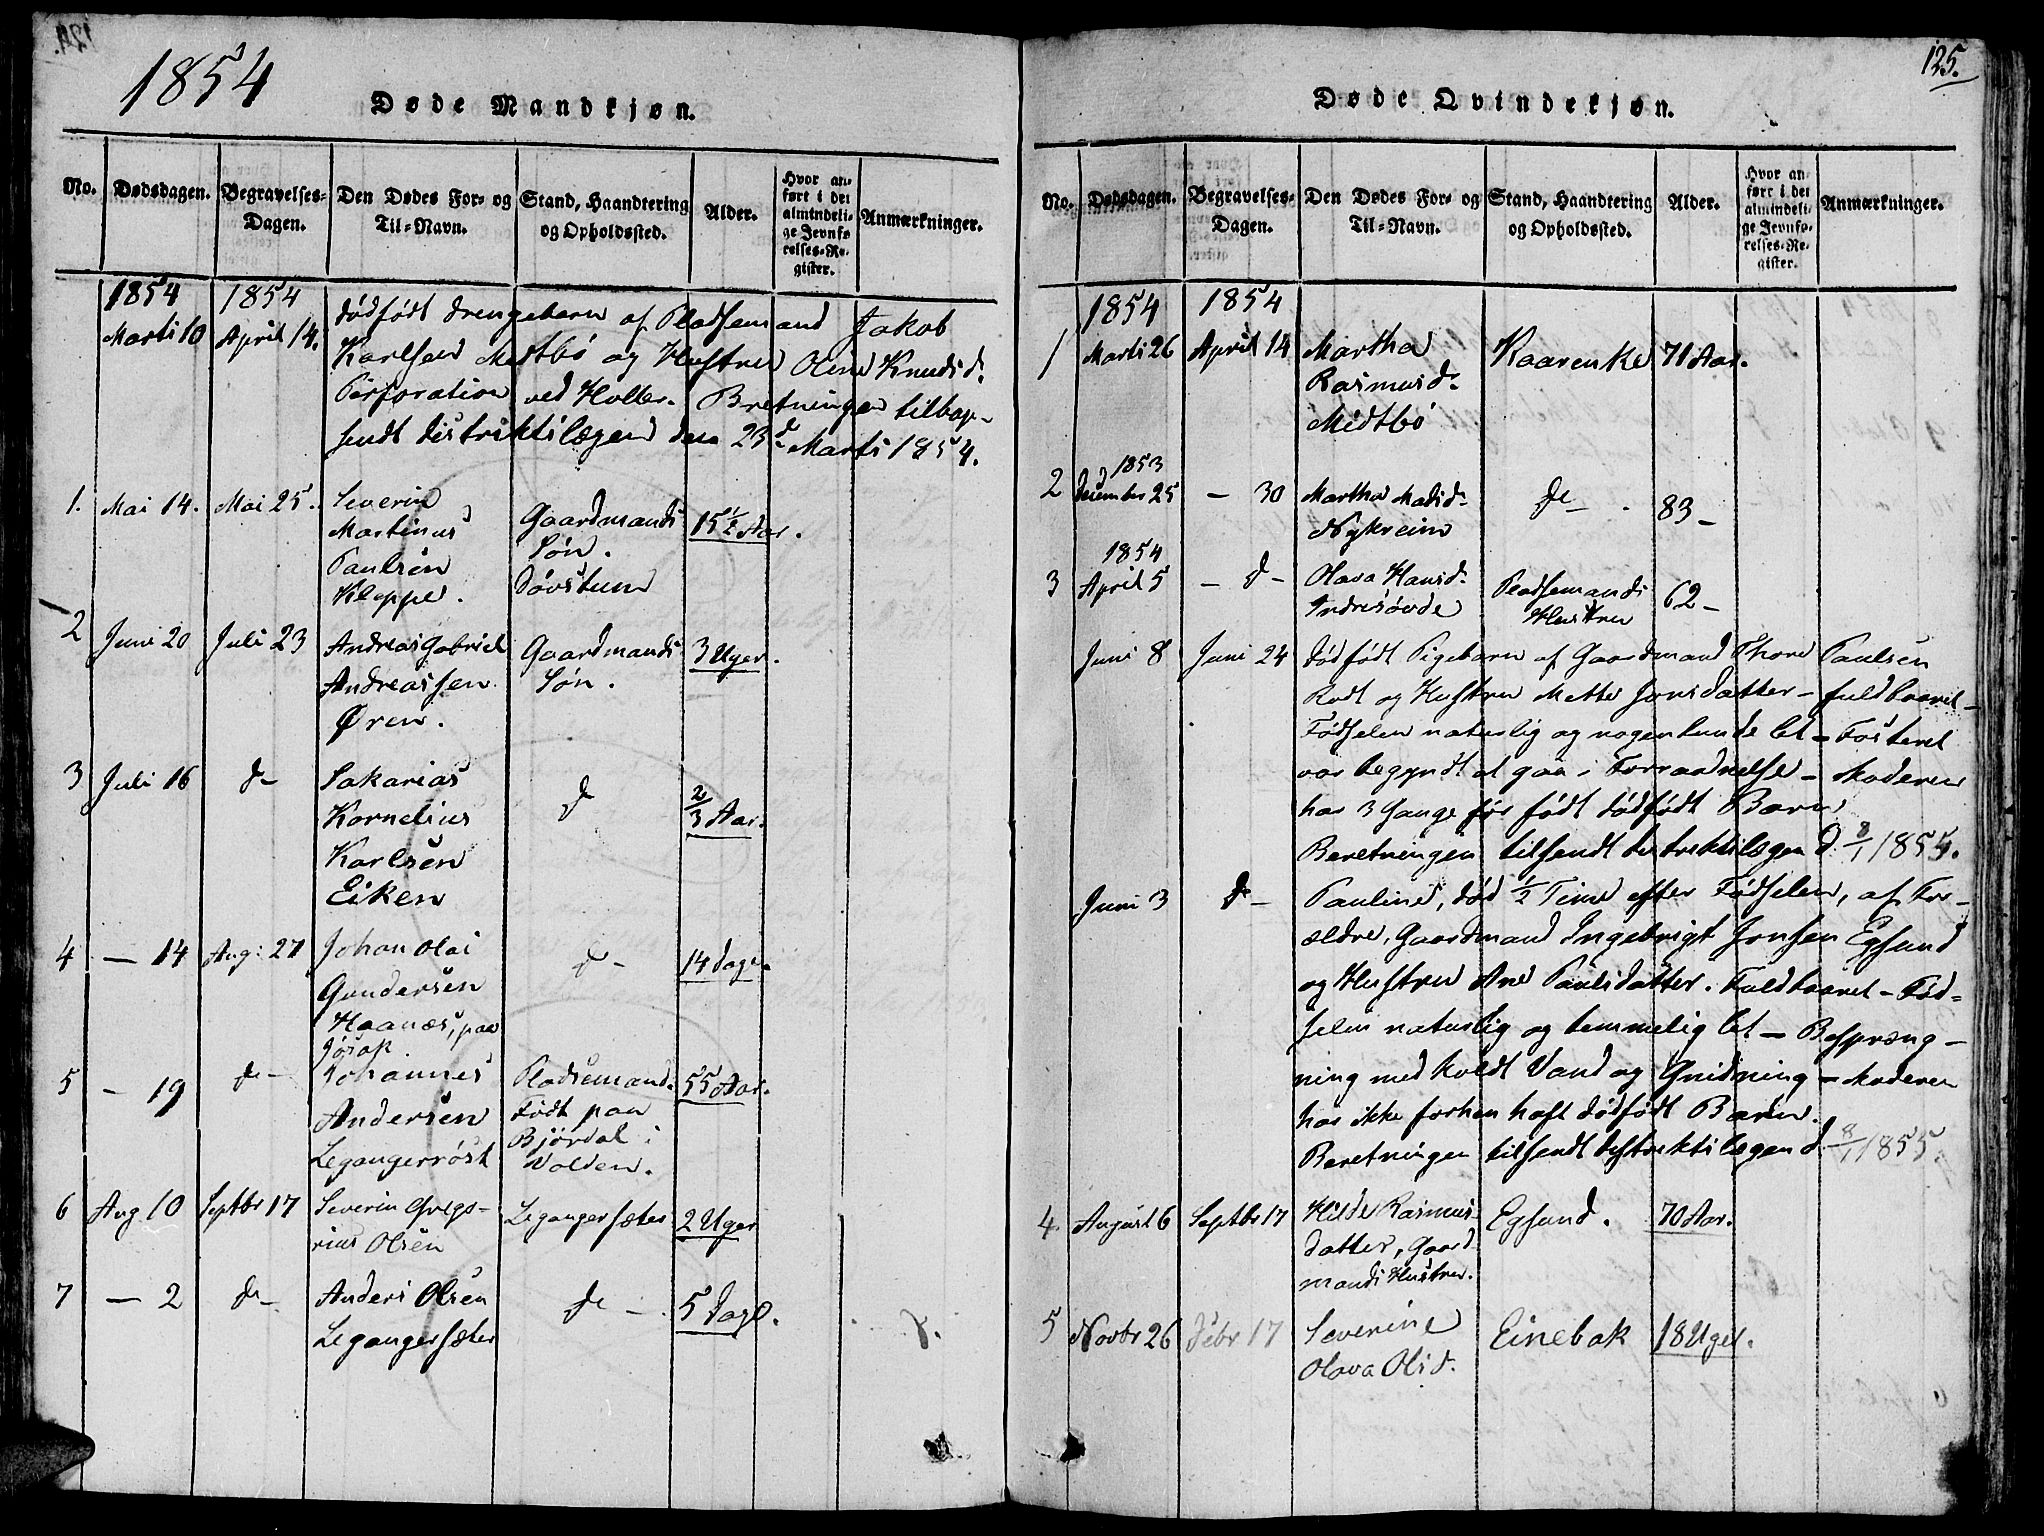 1854
Døde Mandkjøn.
No.
Dødsdagen.
Begravelses-
Dagen.
Den Dødes For- og
Til-Navn.
Stand, Haandtering
og Opholdssted.
Alder.
Hvor an-
ført i det
almindeli-
ge Jevnfø-
relses-Re-
gister.
Anmærkninger.
1854
1854
Marti 10
April 14.
dødfødt Drengebarn af Pladsemand Jakob
Karlsen Medtbö og Hustru Oline Knudsd.
Perforation ved Hollbr. Bretningen tilbag-
sendt distriktslægen den 23d Marti 1854.
1. Mai 14. Mai 25. Severin
Martinus
Paulsen
Kleppe.
Gaardmands
Søn.
Døvstum
15 1/2 Aar.
2 Juni 20 Juli 23 Andreas Gabriel
Andreassen
Øren.
Gaardmands
Søn.
3 Uger.
3 Juli 16 d- Sakarias
Kornelius
Karlsen
Eiken
d
2/3 Aar.
4 - 14 Aug: 27 Johan Olai
Gundersen
Haanæs, paa
Jøsok.
d-
14 Dage.
5 - 19 d- Johannes
Andersen
Legangerröst
Pladsemand.
Født paa
Björdal i
Volden.
55 Aar.
6 Aug 10 Septbr 17 Severin Grego-
rius Olsen
Legangersæter
2 Uger
7 - 2 d- Anders Olsen
Legangersæter
d-
5 Dage.
125.
Døde Qvindekjøn.
No.
Dødsdagen.
Begravelses-
Dagen.
Den Dødes For- og
Til-Navn.
Stand, Haandtering
og Opholdssted.
Alder.
Hvor an-
ført i det
almindeli-
ge Jevnfø-
relses-Re-
gister.
Anmærkninger.
1854
1854
1 Marti 26 April 14 Martha
Rasmusd.
Midtbö
Kaarenke
71 Aar.
1853
2 December 25 - 30 Martha Madsd.
Nykreim
d-
83-
1854
3 April 5 - d- Olava Hansd.
Indresövde
Pladsemands
Hustru
62-
Juni 8 Juni 24 dødfødt Pigebarn af Gaardmand Thore Paulsen
Rodt og Hustru Mette Jonsdatter - fuldbaaret -
Fødselen naturlig og nogenlunde let - Fosteret
var begyndt at gaa i Forraadnelse - Moderen
har 3 Gange før født dødfødt Barn
Beretningen tilsendt distriktslægen d. 8/1 1855.
Juni 3 d- Pauline, død 1/2 Time efter Fødselen, af For-
ældre, Gaardmand Ingebrigt Jonsen Egsund
og Hustru Ane Paulsdatter. Fuldbaaret - Fød-
selen naturlig og temmelig let - Bespræng-
ning med koldt Vand og Gnidning - Moderen
har ikke forhen haft dødfødt Barn.
Beretningen tilsendt distriktslægen d. 8/1 1855.
4. August 6 Septbr 17 Hilde Rasmus-
datter, Gaard-
mands Hustru.
Egsund.
70 Aar.
5 Novbr 26 Febr 17 Severine
Olava Olsd.
Einebak
18 Uger.